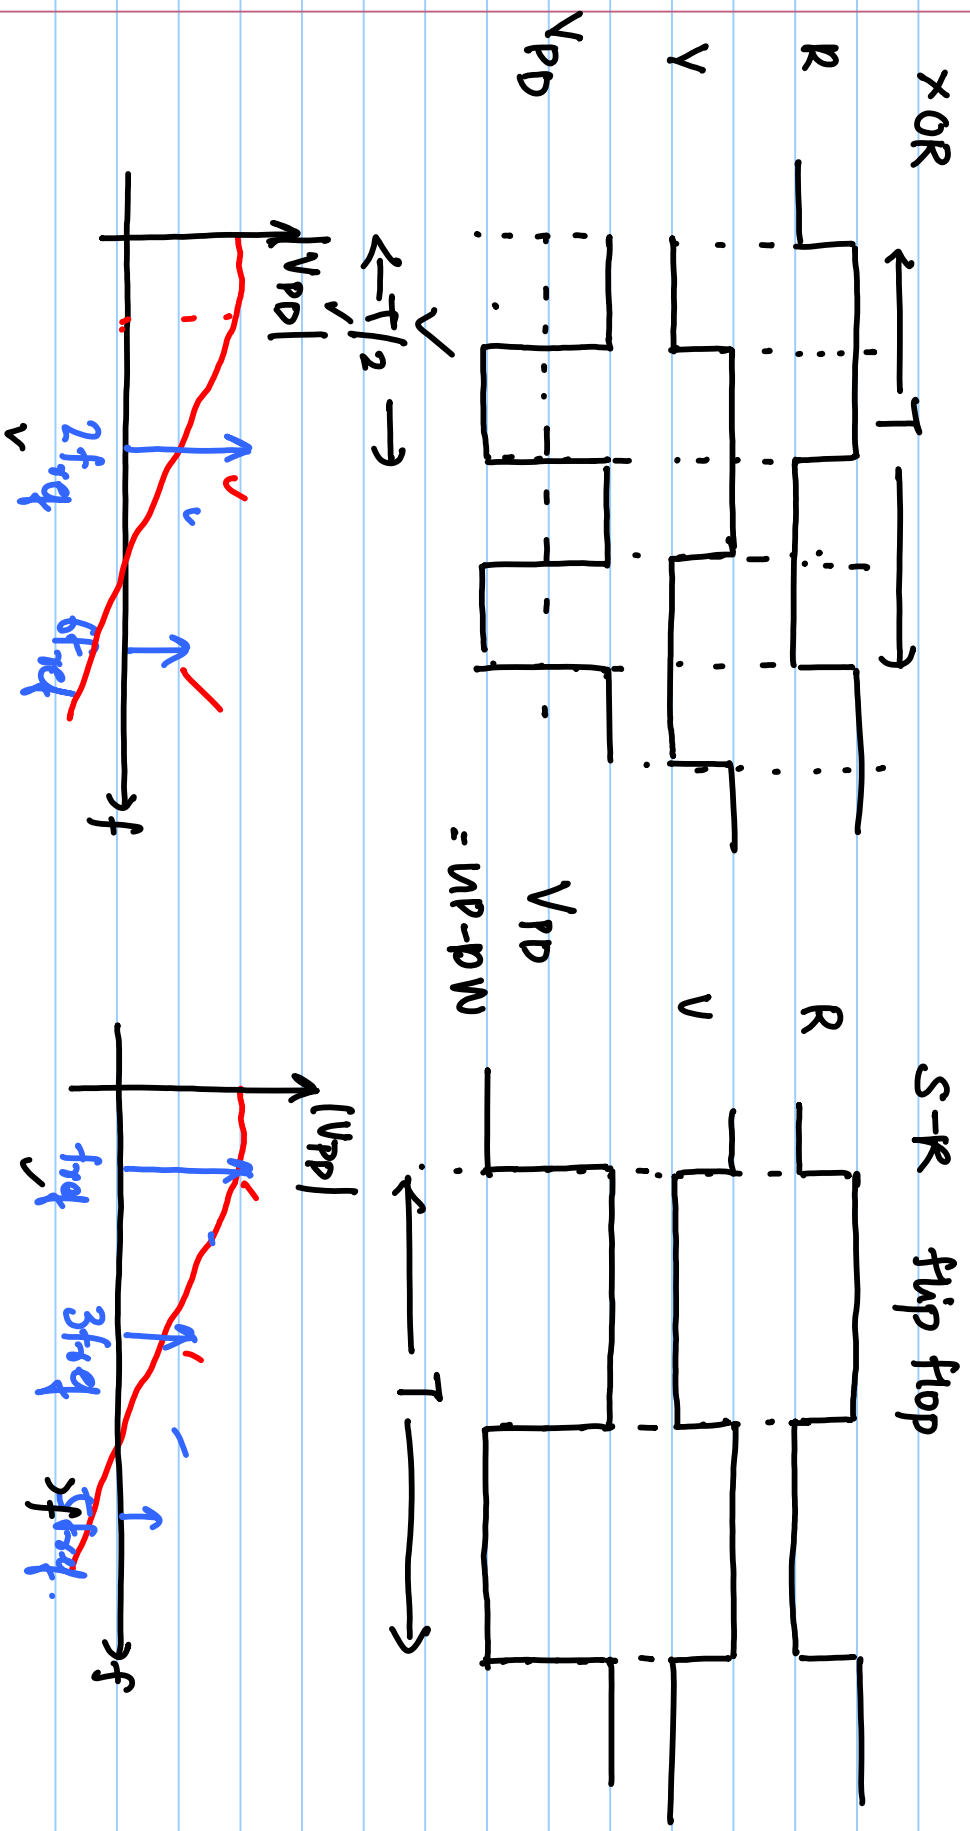 XOR
R
T
V
VPD
T/2
|VPD|
2fref
6fref
f
S-R flip flop
R
V
VPD
= UP-DW
T
|VPD|
fref
3fref
f